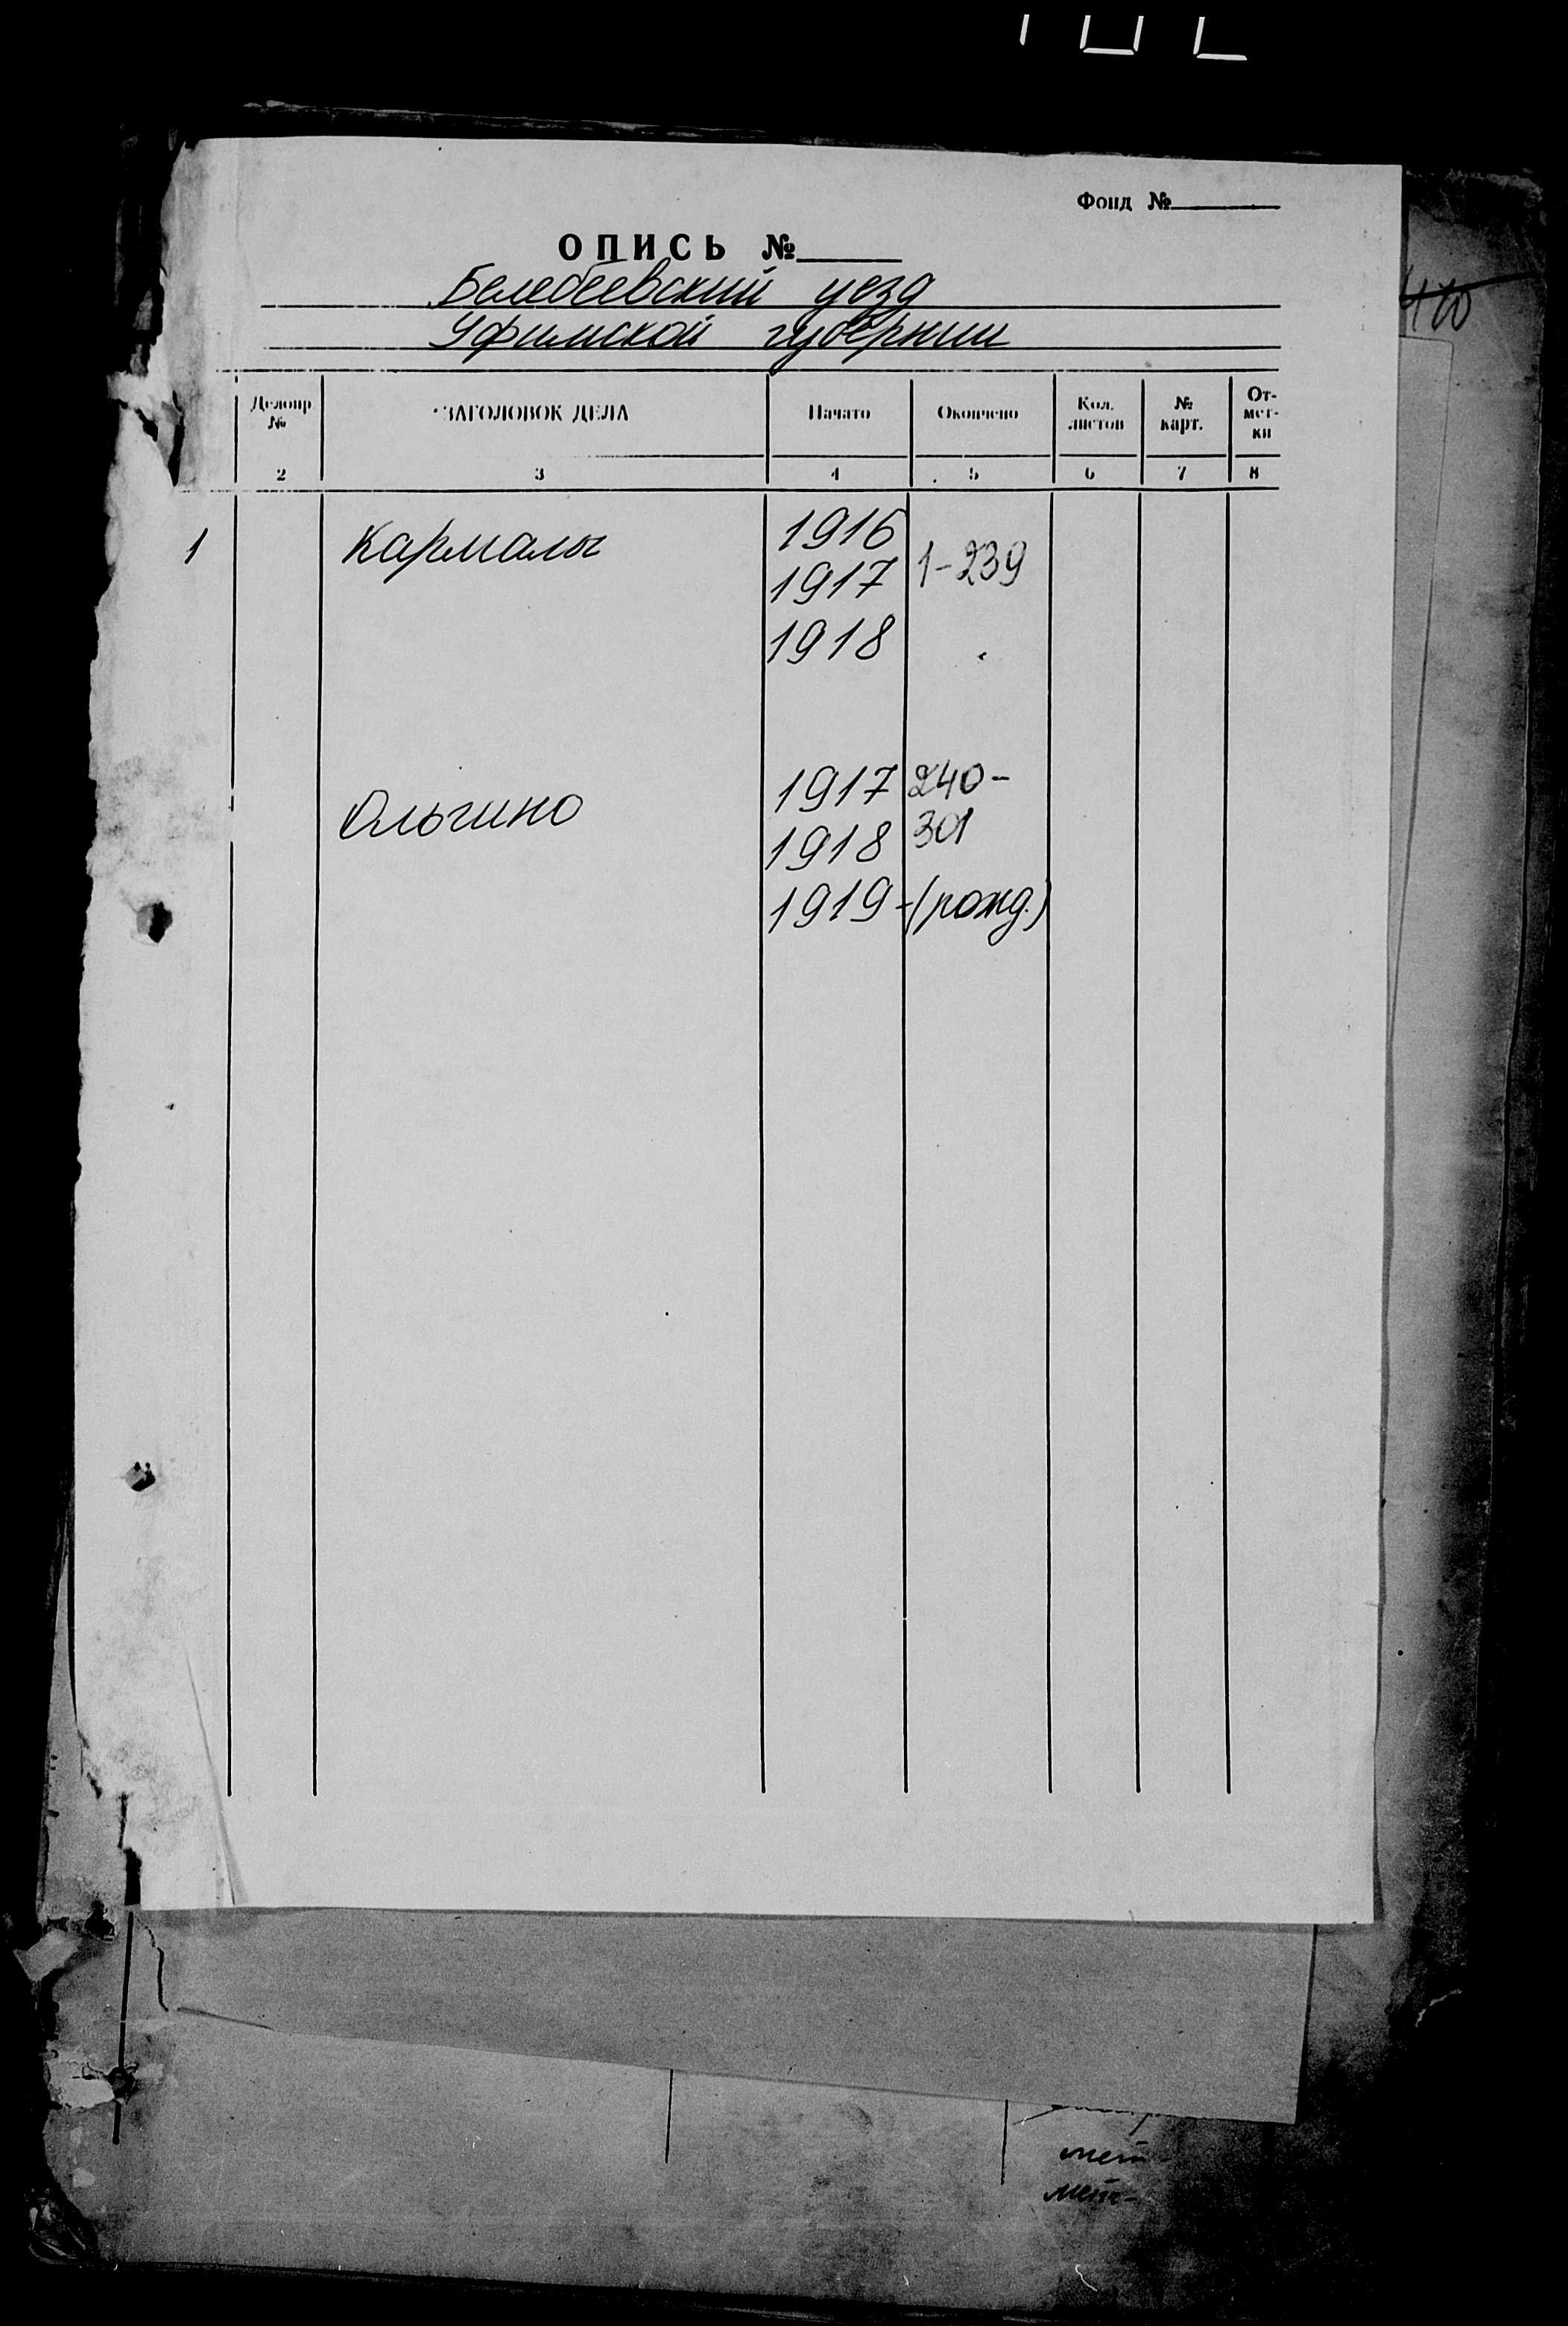 Фонд №
ОПИСЬ №
Белебеевский уезд
Уфимской губернии
Делопр №
ЗАГОЛОВОК ДЕЛА
Начато
Окончено
Кол. листов
№ карт.
От-мет-ки
2 3 4 5 6 7 8
1 Кармалы 1916
1917 1-239
1918
Ольгино 1917 240-
1918 301
1919 -(рожд.)